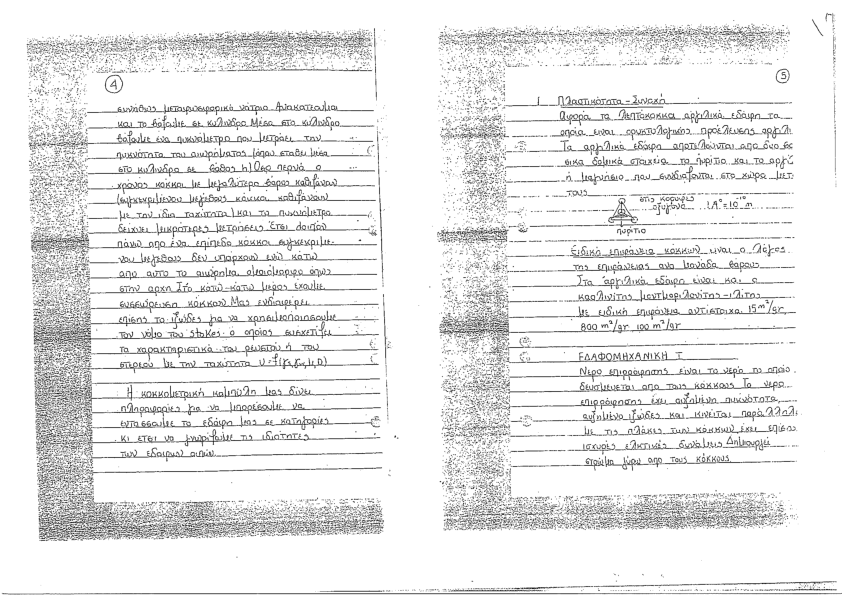 4
συνήθως μεταφωσφορικό νάτριο. Ανακατεύαμε
και το βάζουμε σε κύλινδρο. Μέσα στο κύλινδρο
βάζουμε ένα πυκνόμετρο που μετράει την
πυκνότητα του αιωρήματος (όπου σταθεί μέσα
στο κύλινδρο σε βάθος Η) Όσο περνά ο
χρόνος κόκκοι με μεγαλύτερο βάρος καθιζάνουν
(συγκεκριμένου μεγέθους κόκκοι καθιζάνουν
με την ίδια ταχύτητα) και το πυκνόμετρο
δείχνει μικρότερες μετρήσεις. Έτσι λοιπόν
πάνω από ένα επίπεδο κόκκοι συγκεκριμέ-
νου μεγέθους δεν υπάρχουν ενώ κάτω
από αυτό το αιώρημα ομοιόμορφο όπως
στην αρχή. Στο κάτω-κάτω μέρος έχουμε
συσσώρευση κόκκων. Μας ενδιαφέρει
επίσης το ιξώδες για να χρησιμοποιήσουμε
τον νόμο του Stokes ο οποίος συσχετίζει
τα χαρακτηριστικά του ρευστού ή του
στερεού με την ταχύτητα
Η κοκκομετρική καμπύλη μας δίνει
πληροφορίες για να μπορέσουμε να
εντάσσουμε το έδαφος μας σε κατηγορίες
κι έτσι να γνωρίζουμε τις ιδιότητες
των εδαφών αυτών.
5
Πλαστικότητα - Συνοχή
Αφορά τα λεπτόκοκκα αργιλικά εδάφη τα
οποία είναι ορυκτολογικής προέλευσης αργιλι
Τα αργιλικά εδάφη αποτελούνται από δυο βα
σικα δομικά στοιχεία το πυρίτιο και το αργί
ή μαγνήσιο που συνδυάζονται στο χώρο μετ
τους
στις κορυφές
οξυγόνα 1A° = 10⁻¹⁰ m
πυρίτιο
Ειδική επιφάνεια κόκκων είναι ο λόγος
της επιφάνειας ανά μονάδα βάρους
Στα αργιλικά εδάφη είναι και ο
καολινίτης μοντμοριλονίτης - ιλίτης
με ειδική επιφάνεια αντίστοιχα 15 m²/gr,
800 m²/gr, 100 m²/gr
ΕΔΑΦΟΜΗΧΑΝΙΚΗ Ι
Νερό επιρρόφησης είναι το νερό το οποίο
δεσμεύεται από τους κόκκους. Το νερό
επιρρόφησης έχει αυξημένη πυκνότητα,
αυξημένο ιξώδες και κινείται παράλληλα
με τις πλάκες των κόκκων έχει επίσης
ισχυρές ελκτικές δυνάμεις. Δημιουργεί
στρώμα γύρω από τους κόκκους.